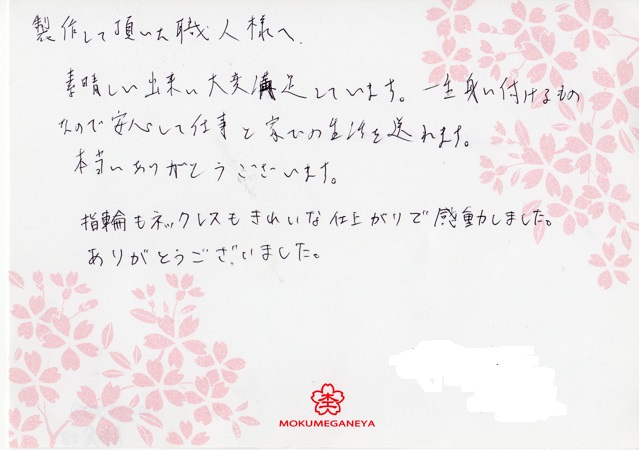 製作して頂いた職人様へ
素晴しい出来に大変満足しています。一生身に付けるもの
なので安心して仕事と家での生活を送れます。
本当にありがとうございます。
指輪もネックレスもきれいな仕上がりで感動しました。
ありがとうございました。
MOKUMEGANEYA